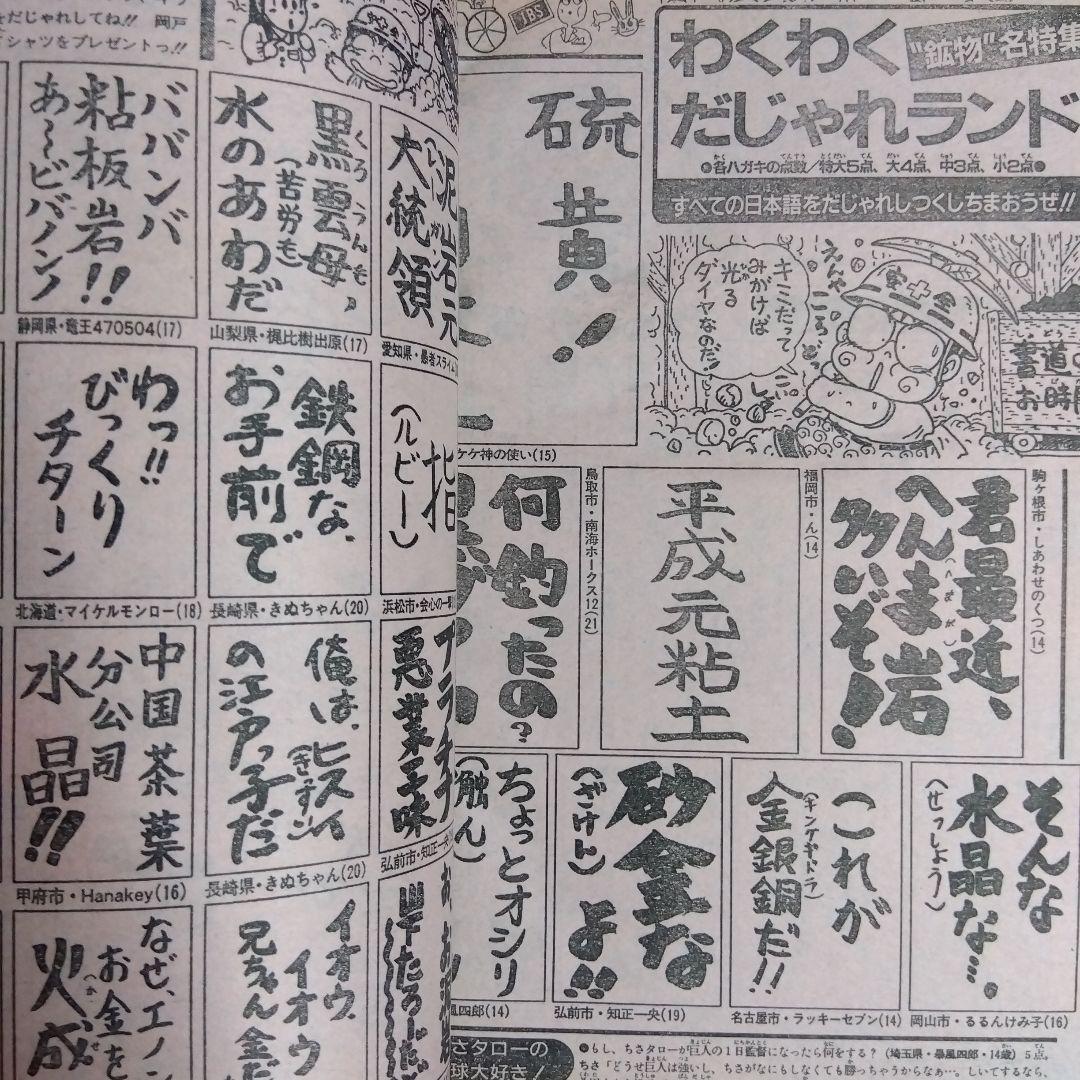 わくわく
"鉱物"名特集
だじゃれランド
●各ハガキの点数/特大5点、大4点、中3点、小2点●
すべての日本語をだじゃれしつくしちまおうぜ!!
キミだって
みがけば
光る
ダイヤなのだ!
えんや
こらっ
安全
書道の
お時間
硫
黄!
ケケ神の使い(15)
駒ヶ根市・しあわせのくつ(14)
君最近、
へんま岩
多いぞ!
福岡市・ん(14)
平成元粘土
鳥取市・南海ホークス12(21)
何釣ったの?
そんな
水晶な…。
(せっしょう)
岡山市・るるんけみ子(16)
これが
金銀銅だ!!
(キングギドラ)
名古屋市・ラッキーセブン(14)
砂金な
(ざけん)
よ!!
弘前市・知正一央(19)
ちょっとオシリ
(触ん)
風四郎(14)
さタローの
球大好き!
●もし、ちさタローが巨人の1日監督になったら何をする?(埼玉県・暴風四郎・14歳)5点。
ちさ「どうせ巨人は強いし、ちさがなにもしなくても勝っちゃうからなぁ…。しいてするなら、
をだじゃれしてね!! 岡戸
シャツをプレゼントっ!!
JBS
泥岩元
大統領
愛知県・愚者スライム
黒雲母、
くろうんも
(苦労も)
水のあわだ
山梨県・梶比樹出原(17)
ババンバ
粘板岩!!
あ〜ビバノン
静岡県・竜王470504(17)
指
(ルビー)
浜松市・会心の一撃
鉄鋼な、
お手前で
長崎県・きぬちゃん(20)
わっ!!
びっくり
チターン
北海道・マイケルモンロー(18)
プラチナ
悪業三昧
弘前市・知正一央
俺は、ヒスイ
(きっすい)
の江戸っ子だ
長崎県・きぬちゃん(20)
中国茶葉
分公司
水晶!!
甲府市・Hanakey(16)
イオウ、
イオウ
兄ちゃん金だ
なぜ、エノ
お金を
火成